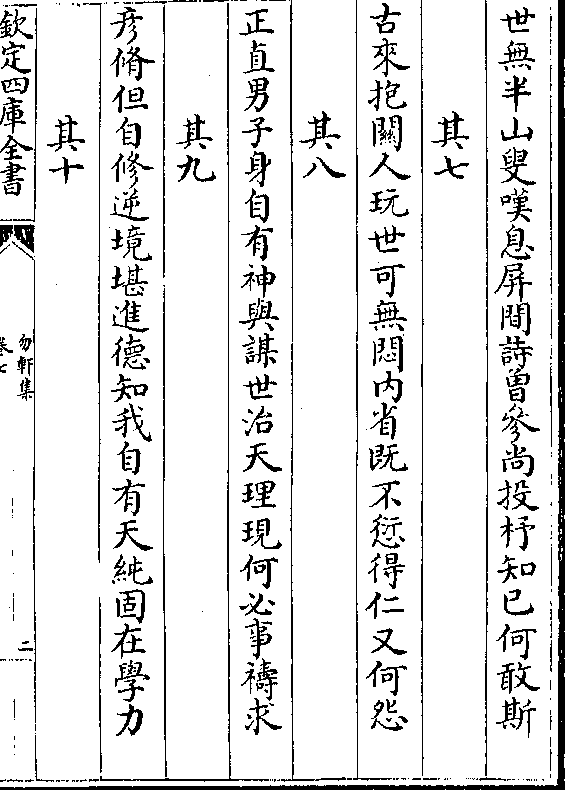 世無半山叟嘆息屏間詩曽參尚投杼知已何敢斯
其七
古來抱關人玩世可無悶内省既不愆得仁又何怨
其八
正直男子身自有神與謀世治天理現何必事禱求
其九
彦脩但自修逆境堪進德知我自有天純固在學力
其十
欽定四庫全書
勿軒集
卷七
二